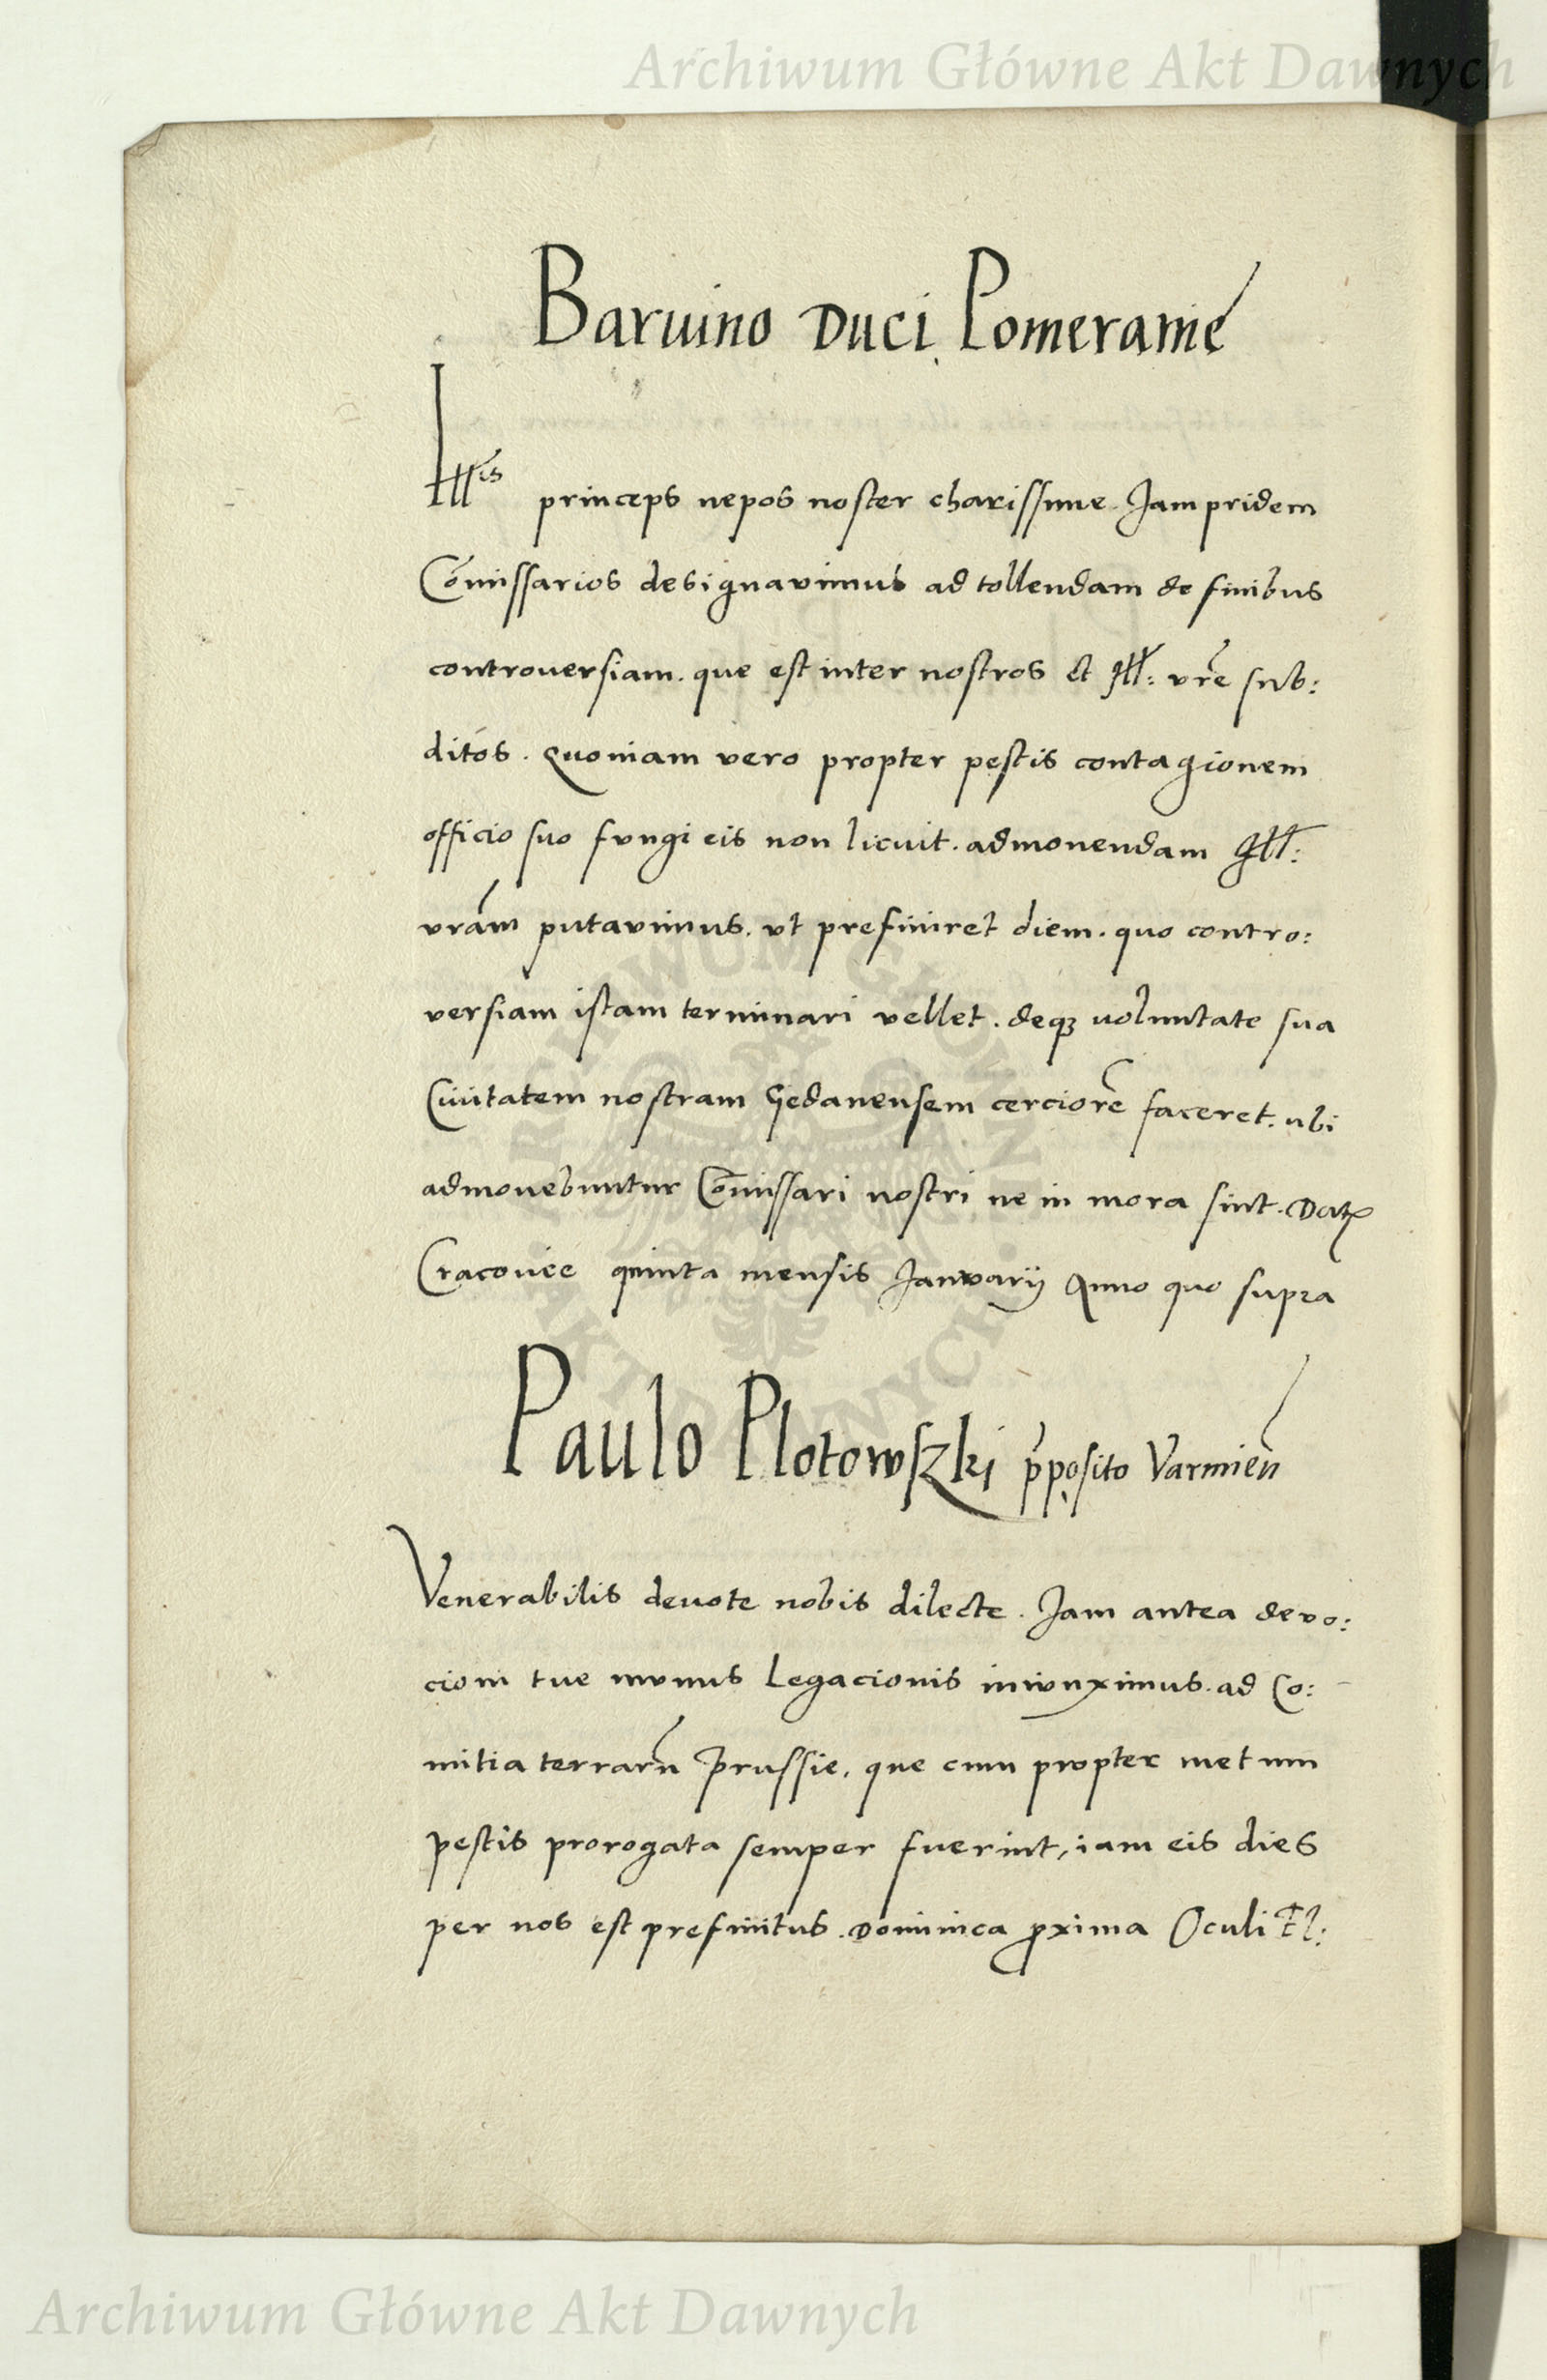 Archiwum Główne Akt Dawnych
Baruino Duci Pomeranie
Illis princeps nepos noster charissime. Jam pridem
Cōmissarios designavimus ad tollendam de finibus
controversiam. que est inter nostros et Ill: vrē sub:
ditos. Quoniam vero propter pestis contagionem
officio suo fungi eis non licuit. admonendam Ill:
vrām putavimus. vt prefiniret diem. quo contro:
versiam istam terminari vellet. deqꝫ voluntate sua
Civitatem nostram Gedanensem cerciorē faceret. ubi
admonebuntur Cōmissari nostri ne in mora sint. Datꝭ
Cracovie quinta mensis Januarij Anno quo supra
Paulo Plotowszki p̄posito Varmieñ
Venerabilis devote nobis dilecte. Jam antea devo:
cioni tue munus Legacionis iniunximus. ad Co:
mitia terrarū Prussie. que cum propter metum
pestis prorogata semper fuerint, iam eis dies
per nos est prefinitus. Dominica ꝓxima Oculi
ARCHIWUM GŁÓWNE AKT DAWNYCH
Archiwum Główne Akt Dawnych